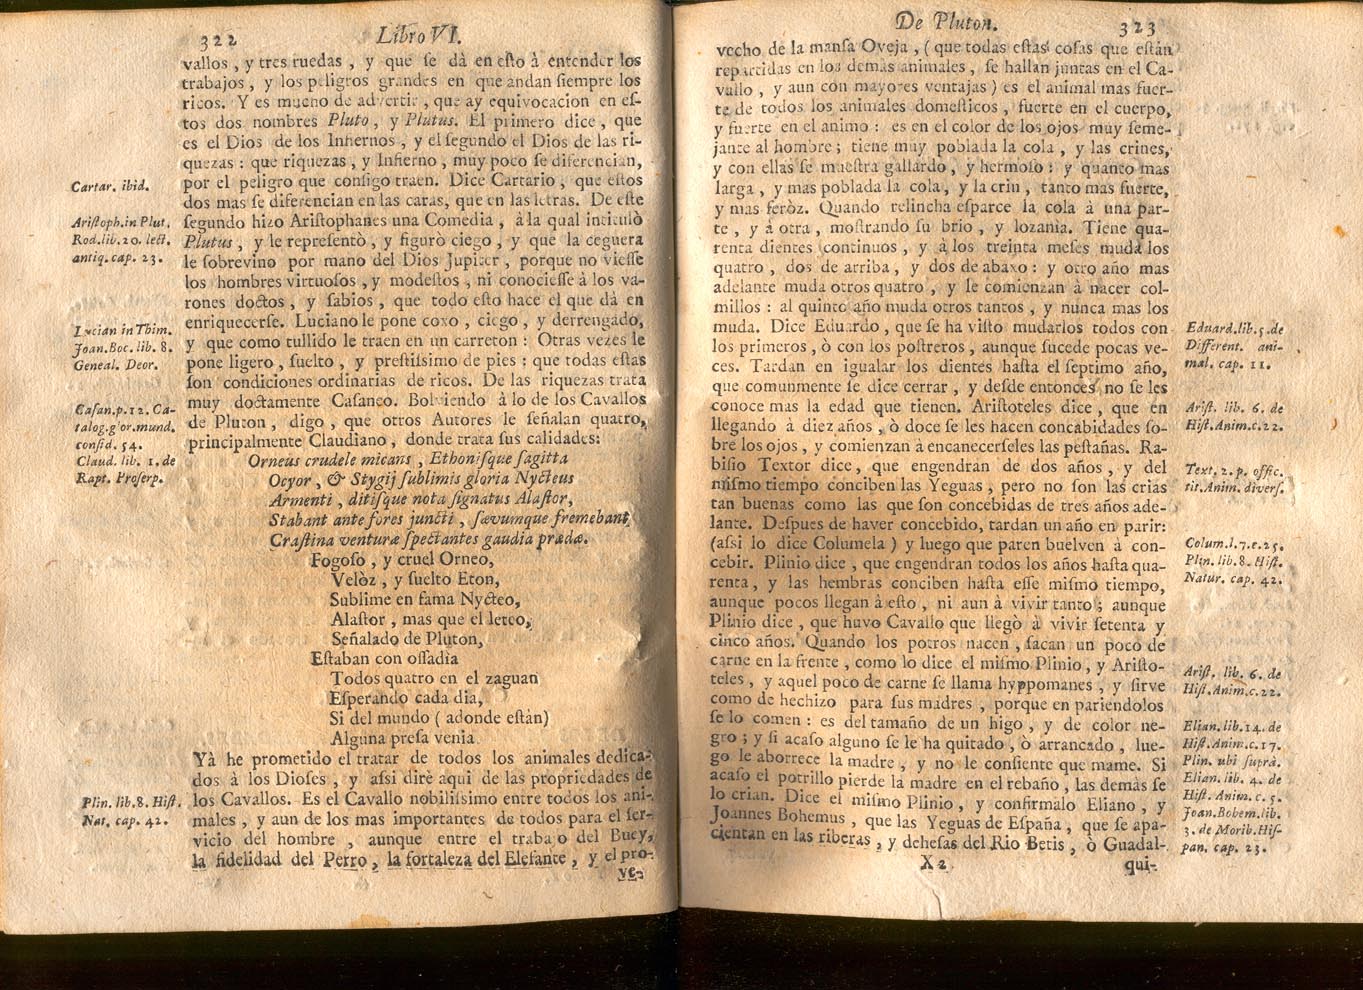 322
Libro VI.
vallos, y tres ruedas, y que ſe dà en eſto à entender los
trabajos, y los peligros grandes en que andan ſiempre los
ricos. Y es mucho de advertir, que ay equivocacion en eſ-
tos dos nombres Pluto, y Plutus. El primero dice, que
es el Dios de los Infiernos, y el ſegundo el Dios de las ri-
quezas: que riquezas, y Infierno, muy poco ſe diferencian,
por el peligro que conſigo traen. Dice Cartario, que eſtos
dos mas ſe diferencian en las caras, que en las letras. De eſte
ſegundo hizo Ariſtophanes una Comedia, à la qual intitulò
Plutus, y le repreſentò, y figurò ciego, y que la ceguera
le ſobrevino por mano del Dios Jupiter, porque no vieſſe
los hombres virtuoſos, y modeſtos, ni conocieſſe à los va-
rones doctos, y ſabios, que todo eſto hace el que dà en
enriquecerſe. Luciano le pone coxo, ciego, y derrengado,
y que como tullido le traen en un carreton: Otras vezes le
pone ligero, ſuelto, y preſtiſsimo de pies: que todas eſtas
ſon condiciones ordinarias de ricos. De las riquezas trata
muy doctamente Caſaneo. Bolviendo à lo de los Cavallos
de Pluton, digo, que otros Autores le ſeñalan quatro,
principalmente Claudiano, donde trata ſus calidades:
Orneus crudele micans, Ethoniſque ſagitta
Ocyor, & Stygij ſublimis gloria Nycteus
Armenti, ditiſque nota ſignatus Alaſtor,
Stabant ante fores juncti, ſævumque fremebant,
Craſtina venturæ ſpectantes gaudia prædæ.
Fogoſo, y cruel Orneo,
Velòz, y ſuelto Eton,
Sublime en fama Nycteo,
Alaſtor, mas que el leteo,
Señalado de Pluton,
Eſtaban con oſſadia
Todos quatro en el zaguan
Eſperando cada dia,
Si del mundo (adonde eſtán)
Alguna preſa venia.
Yà he prometido el tratar de todos los animales dedica-
dos à los Dioſes, y aſsi dirè aqui de las propriedades de
los Cavallos. Es el Cavallo nobiliſsimo entre todos los ani-
males, y aun de los mas importantes de todos para el ſer-
vicio del hombre, aunque entre el trabajo del Buey,
la fidelidad del Perro, la fortaleza del Elefante, y el pro-
ve-
Cartar. ibid.
Ariſtoph. in Plut.
Rod. lib. 20. lect.
antiq. cap. 23.
Lucian in Thim.
Joan. Boc. lib. 8.
Geneal. Deor.
Caſan. p. 12. Ca-
talog. glor. mund.
conſid. 54.
Claud. lib. 1. de
Rapt. Proſerp.
Plin. lib. 8. Hiſt.
Nat. cap. 42.
De Pluton.
323
vecho de la manſa Oveja, (que todas eſtas coſas que eſtán
repartidas en los demàs animales, ſe hallan juntas en el Ca-
vallo, y aun con mayores ventajas) es el animal mas fuer-
te de todos los animales domeſticos, fuerte en el cuerpo,
y fuerte en el animo: es en el color de los ojos muy ſeme-
jante al hombre; tiene muy poblada la cola, y las crines,
y con ellas ſe mueſtra gallardo, y hermoſo: y quanto mas
larga, y mas poblada la cola, y la crin, tanto mas fuerte,
y mas feròz. Quando relincha eſparce la cola à una par-
te, y à otra, moſtrando ſu brio, y lozania. Tiene qua-
renta dientes continuos, y à los treinta meſes muda los
quatro, dos de arriba, y dos de abaxo: y otro año mas
adelante muda otros quatro, y le comienzan à nacer col-
millos: al quinto año muda otros tantos, y nunca mas los
muda. Dice Eduardo, que ſe ha viſto mudarlos todos con
los primeros, ò con los poſtreros, aunque ſucede pocas ve-
ces. Tardan en igualar los dientes haſta el ſeptimo año,
que comunmente ſe dice cerrar, y deſde entonces no ſe les
conoce mas la edad que tienen. Ariſtoteles dice, que en
llegando à diez años, ò doce ſe les hacen concabidades ſo-
bre los ojos, y comienzan à encanecerſeles las peſtañas. Ra-
biſio Textor dice, que engendran de dos años, y del
miſmo tiempo conciben las Yeguas, pero no ſon las crias
tan buenas como las que ſon concebidas de tres años ade-
lante. Deſpues de haver concebido, tardan un año en parir:
(aſsi lo dice Columela) y luego que paren buelven à con-
cebir. Plinio dice, que engendran todos los años haſta qua-
renta, y las hembras conciben haſta eſſe miſmo tiempo,
aunque pocos llegan à eſto, ni aun à vivir tanto; aunque
Plinio dice, que huvo Cavallo que llegò à vivir ſetenta y
cinco años. Quando los potros nacen, ſacan un poco de
carne en la frente, como lo dice el miſmo Plinio, y Ariſto-
teles, y aquel poco de carne ſe llama hyppomanes, y ſirve
como de hechizo para ſus madres, porque en pariendolos
ſe lo comen: es del tamaño de un higo, y de color ne-
gro; y ſi acaſo alguno ſe le ha quitado, ò arrancado, lue-
go le aborrece la madre, y no le conſiente que mame. Si
acaſo el potrillo pierde la madre en el rebaño, las demàs ſe
lo crian. Dice el miſmo Plinio, y confirmalo Eliano, y
Joannes Bohemus, que las Yeguas de Eſpaña, que ſe apa-
cientan en las riberas, y deheſas del Rio Betis, ò Guadal-
X2
qui-
Eduard. lib. 5. de
Different. ani-
mal. cap. 11.
Ariſt. lib. 6. de
Hiſt. Anim. c. 22.
Text. 2. p. offic.
tit. Anim. diverſ.
Colum. l. 7. c. 25.
Plin. lib. 8. Hiſt.
Natur. cap. 42.
Ariſt. lib. 6. de
Hiſt. Anim. c. 22.
Elian. lib. 14. de
Hiſt. Anim. c. 17.
Plin. ubi ſuprà.
Elian. lib. 4. de
Hiſt. Anim. c. 5.
Joan. Bohem. lib.
3. de Morib. Hiſ-
pan. cap. 23.